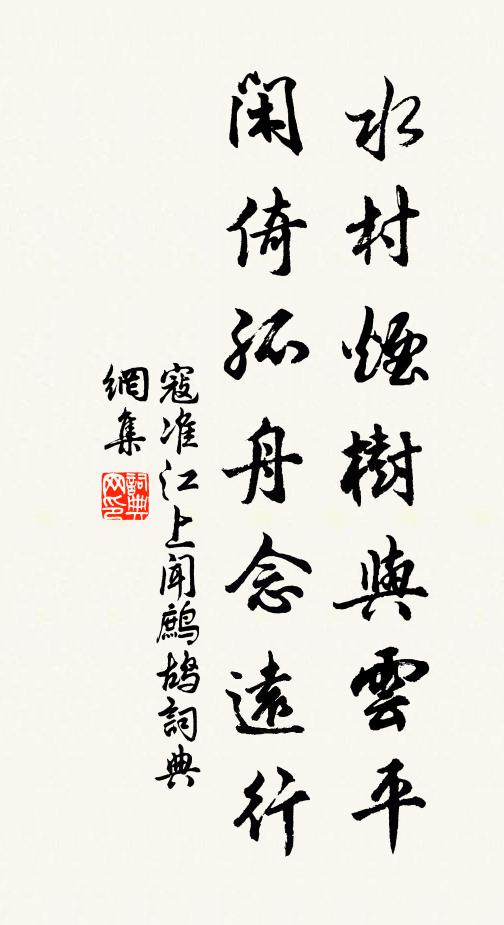 水村煙樹與雲平
閑倚孤舟念遠行
寇准江上聞鷓鴣詞典
網集
詞典網印